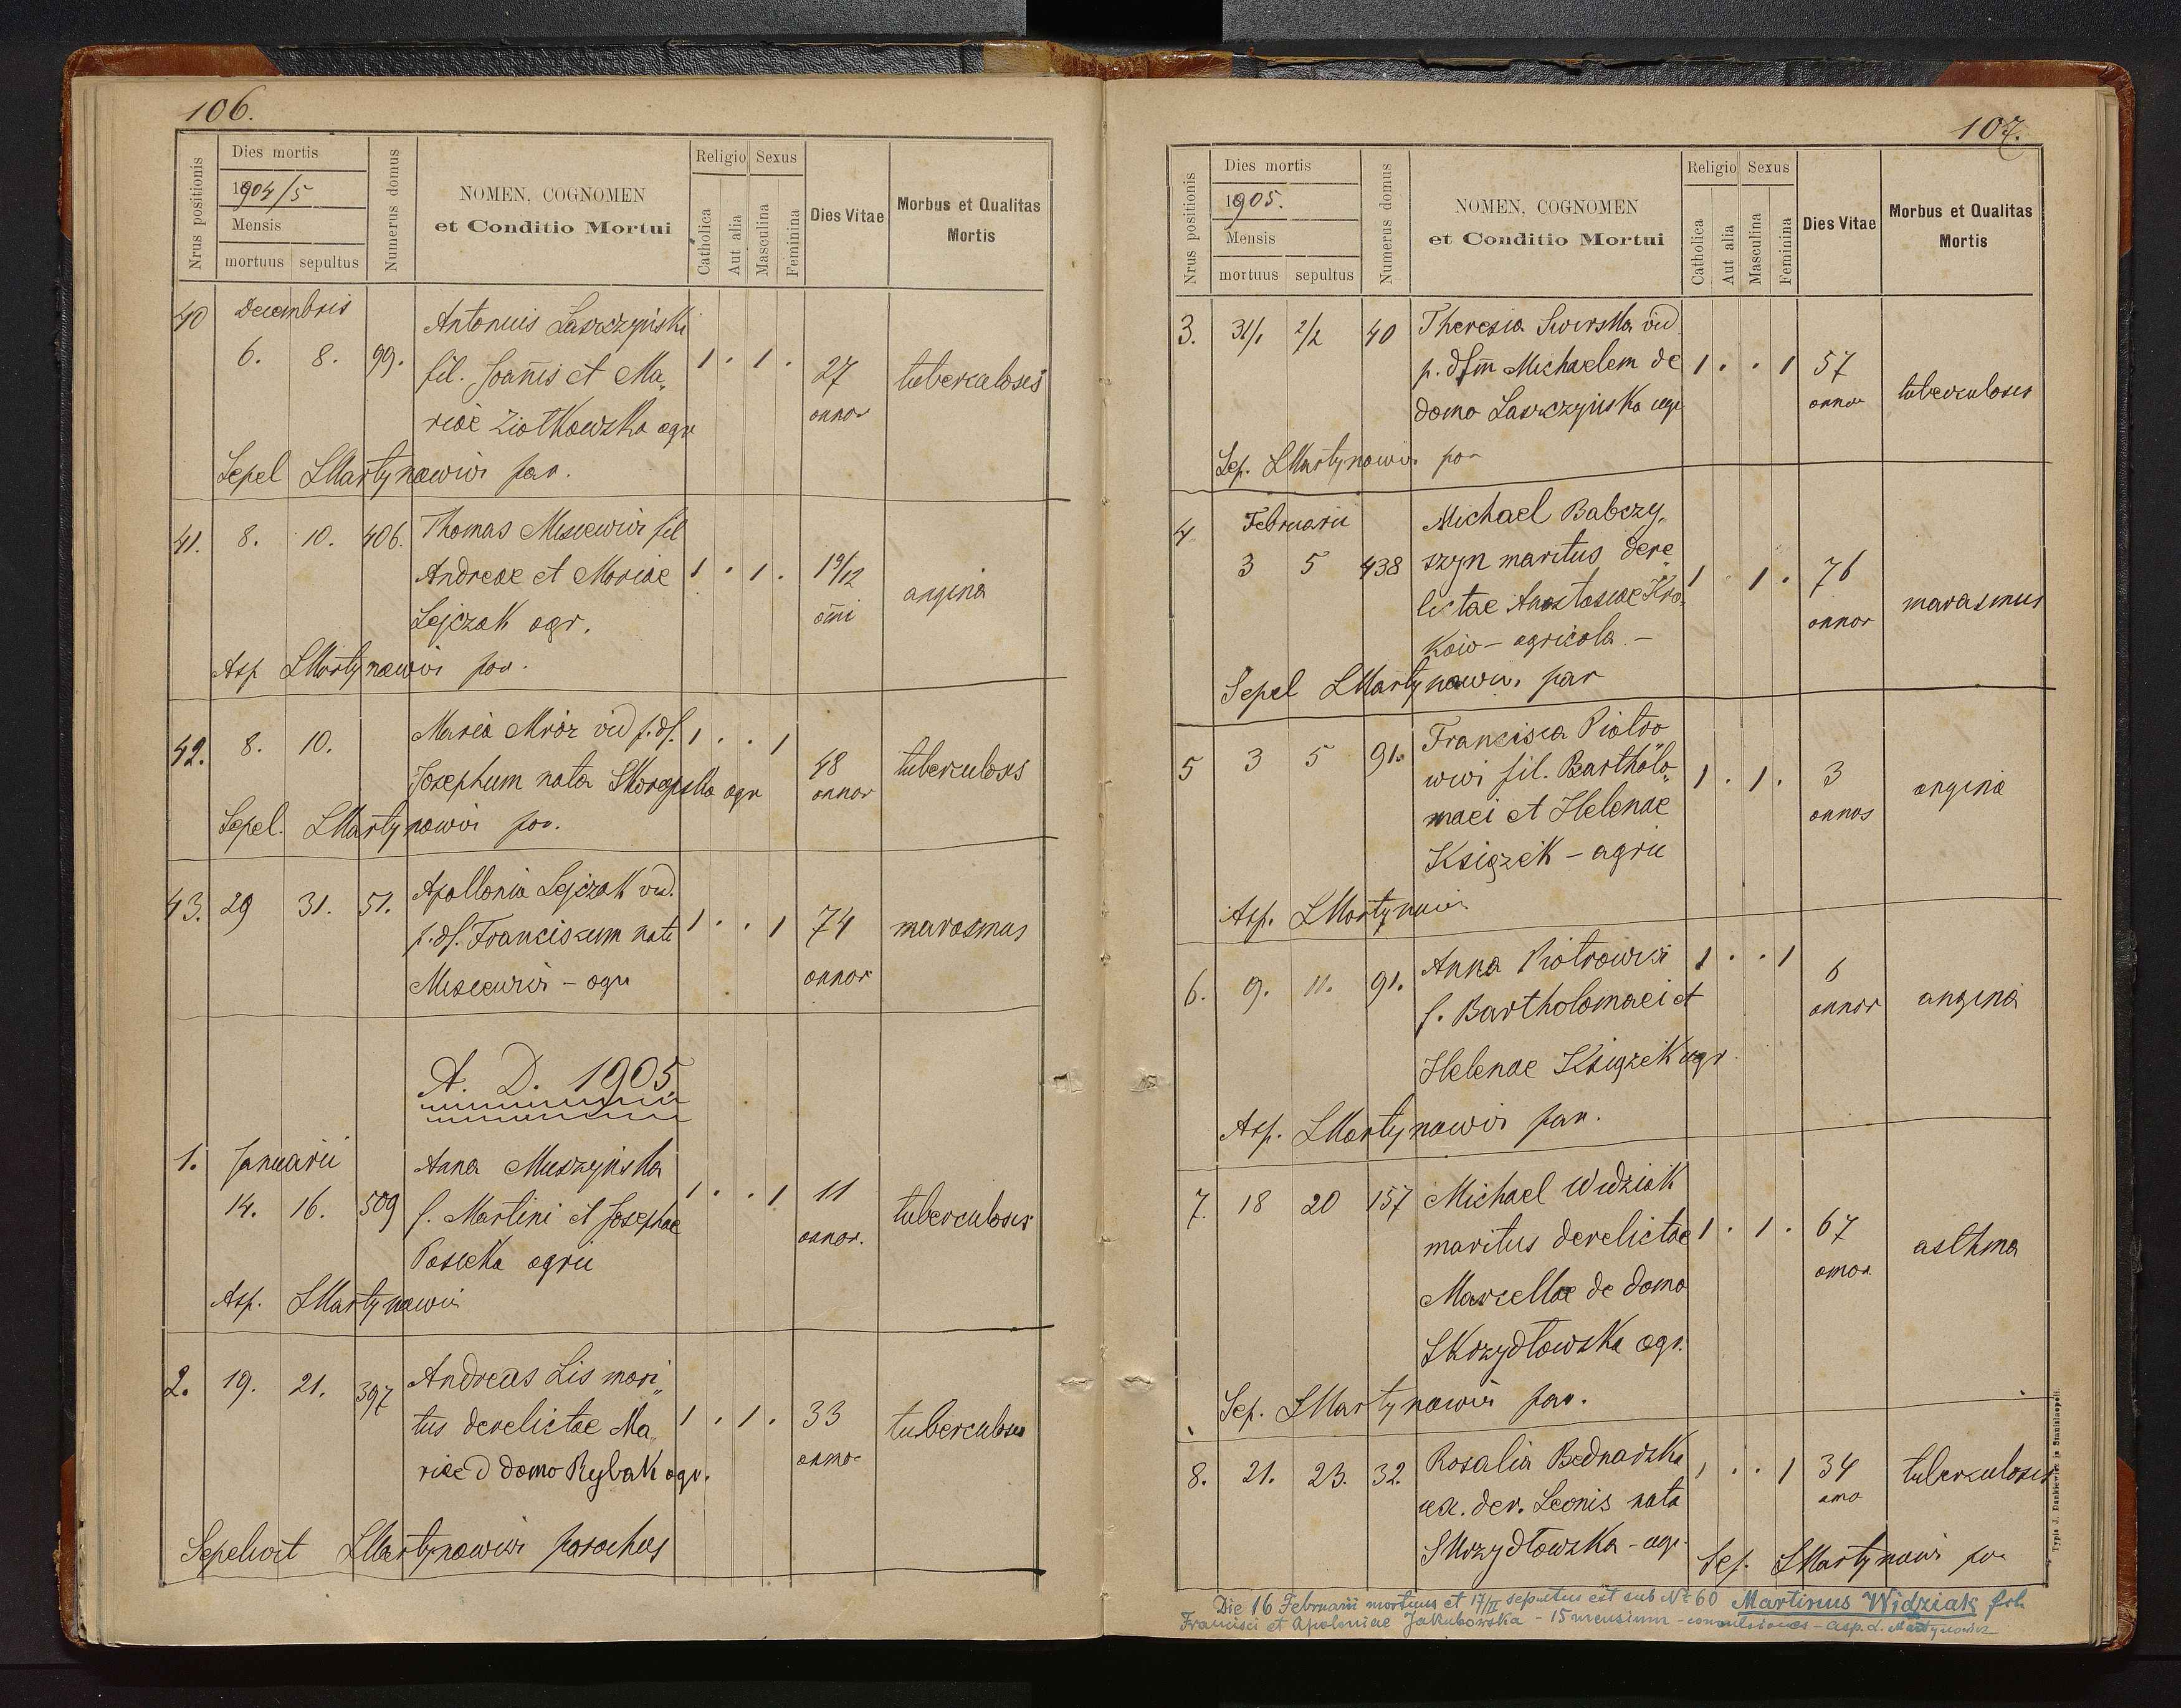 106.
Nrus positionis
Dies mortis
1904/5
Mensis
mortuus sepultus
Numerus domus
NOMEN, COGNOMEN
et Conditio Mortui
Religio Sexus
Catholica
Aut alia
Masculina
Feminina
Dies Vitae
Morbus et Qualitas
Mortis
40 Decembris Antonius Laszczyński
6. 8. 99. fil. Joañis et Ma„ 1 . 1 . 27 tuberculosis
riae Ziółkowska agr annor
Sepel LMartynowicz par.
41. 8. 10. 406. Thomas Misiewicz fil
Andreae et Mariae 1 . 1 . 19/12 angina
Lejczak agr. añi
Asp LMartynowicz par.
42. 8. 10. Maria Mróz vid p. df. 1 . . 1 48 tuberculosis
Josephum nata agr annor
Sepel. LMartynowicz par.
43. 29 31. 51. Apollonia Lejczak vid.
p. df. Franciszum nata 1 . . 1 74 marasmus
Misiewicz - agr annor
A. D. 1905.
1. Januarii Anna Muszyńska
14. 16. 509 f. Martini et Josephae 1 . . 1 11 tuberculosis
Posiecka agrii annor.
Asp. LMartynowicz
2. 19. 21. 397 Andreas Lis mari„
tus derelictae Ma„ 1 . 1 . 33 tuberculosis
riae d domo Rybak agr. anno
Sepelivit LMartynowicz parochus
107.
Nrus positionis
Dies mortis
1905.
Mensis
mortuus sepultus
Numerus domus
NOMEN, COGNOMEN
et Conditio Mortui
Religio Sexus
Catholica
Aut alia
Masculina
Feminina
Dies Vitae
Morbus et Qualitas
Mortis
3. 31/1 2/2 40 Theresia Swirska vid
p. dfm Michaelem de 1 . . 1 57 tuberculosis
domo Laszczyńska agr annor
Sep. LMartynowicz par
4 Februarii Michael Babczy„
3 5 438 szyn maritus dere„ 1 . 1 . 76 marasmus
lictae Anastasiae Kro„ annor
kaio - agricola -
Sepel LMartynowicz par
5 3 5 91. Francisca Piotro
wicz fil. Bartholo„ 1 . 1 . 3 angina
maei et Helenae annos
Książek - agrii
Asp. LMartynowicz
6. 9. 11. 91. Anna Piotrowicz 1 . . 1 6 angina
f. Bartholomaei et annor
Helenae Książek agr.
Asp. LMartynowicz par.
7. 18 20 157 Michael Widziak
maritus derelictae 1 . 1 . 67 asthma
Marcellae de domo annor
Skrzydłowska agr.
Sep. LMartynowicz par.
8. 21. 23. 32. Rosalia Bednarska 1 . . 1 34 tuberculosis
ux. der. Leonis nata anno
Skrzydłowska - agr.
Sep. LMartynowicz par
Die 16 Februarii mortuus et 17/II sepultus est sub № 60 Martinus Widziak fil.
Francisci et Apoloniae Jakubowska - 15 mensium - convulsiones - asp. L. Martynowicz
Typis J. Dankiewicz in Stanislaopoli.